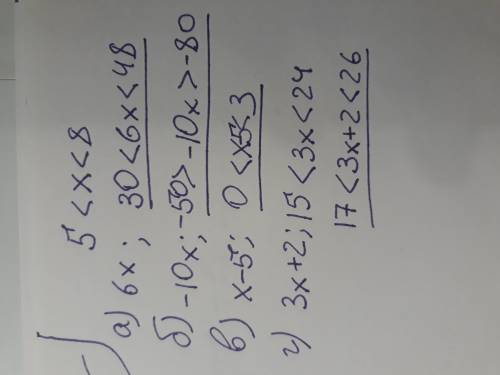 5 < x < 8
а) 6x; 30 < 6x < 48
б) -10x; -50 > -10x > -80
в) x-5; 0 < x5 < 3
г) 3x+2; 15 < 3x < 24
17 < 3x+2 < 26